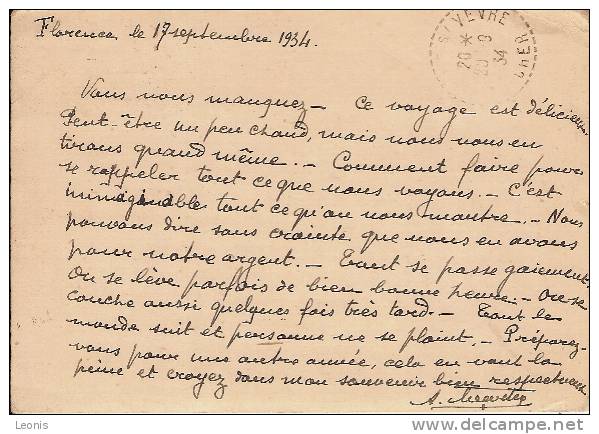 Florence le 17 septembre 1934.
S/ VEVRE
CHER
20 *
20 9
34
Vous nous manquez - Ce voyage est délicieux.
Peut-être un peu chaud, mais nous nous en
tirons quand même. - Comment faire pour
se rappeler tout ce que nous voyons. - C'est
inimaginable tout ce qu'on nous montre. - Nous
pouvons dire sans crainte que nous en avons
pour notre argent. - Tout se passe gaiement.
On se lève parfois de bien bonne heure. - On se
couche aussi quelques fois très tard. - Tout le
monde suit et personne ne se plaint. - Préparez-
vous pour une autre année, cela en vaut la
peine et croyez dans mon souvenir bien respectueux
A.
Leonis
www.delcampe.net